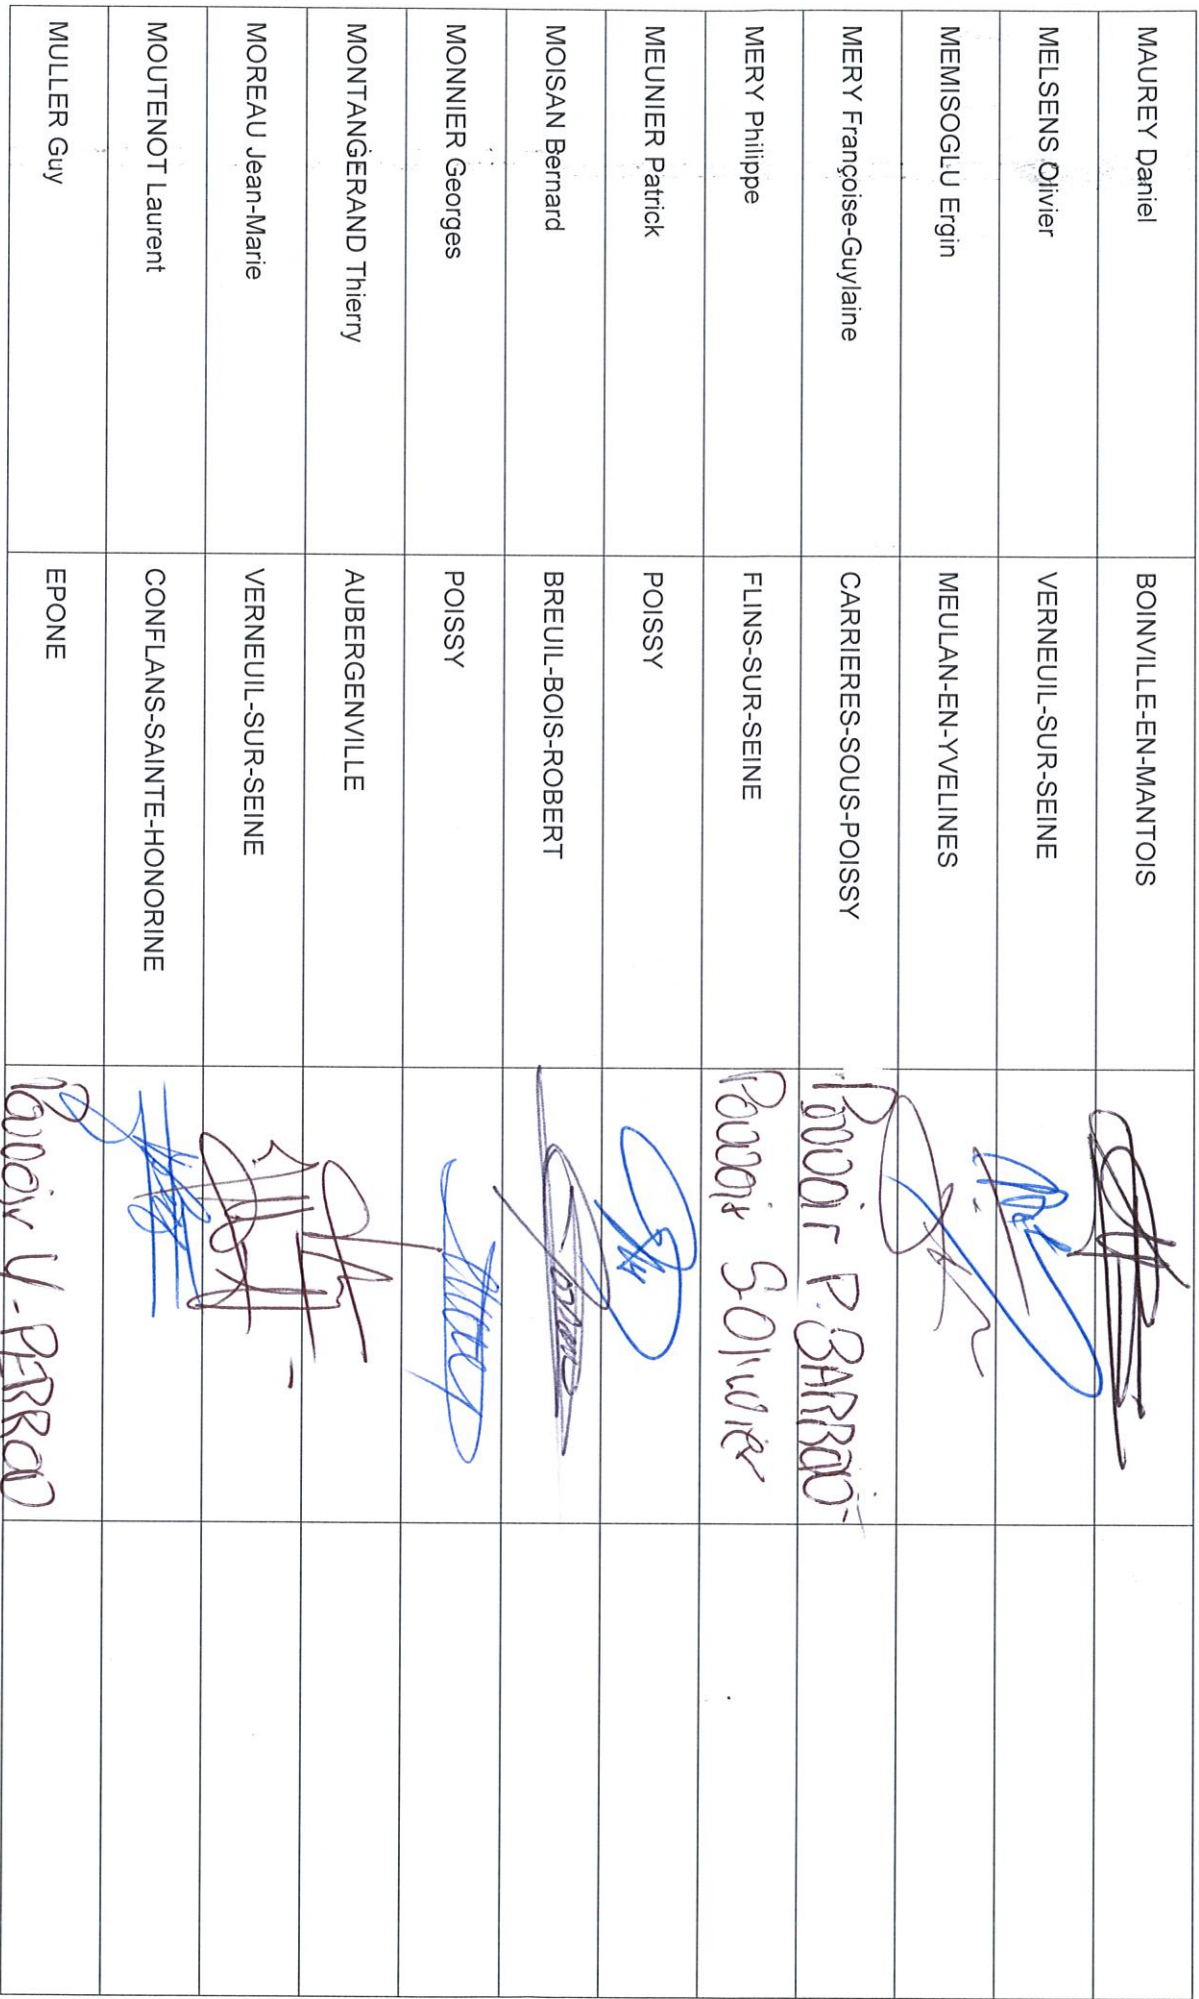 MAUREY Daniel BOINVILLE-EN-MANTOIS
MELSENS Olivier VERNEUIL-SUR-SEINE
MEMISOGLU Ergin MEULAN-EN-YVELINES
MERY Françoise-Guylaine CARRIERES-SOUS-POISSY Pouvoir P. BARRON
MERY Philippe FLINS-SUR-SEINE Pouvoir S. Olivier
MEUNIER Patrick POISSY
MOISAN Bernard BREUIL-BOIS-ROBERT
MONNIER Georges POISSY
MONTANGERAND Thierry AUBERGENVILLE
MOREAU Jean-Marie VERNEUIL-SUR-SEINE
MOUTENOT Laurent CONFLANS-SAINTE-HONORINE
MULLER Guy EPONE Pouvoir Y. PERRON